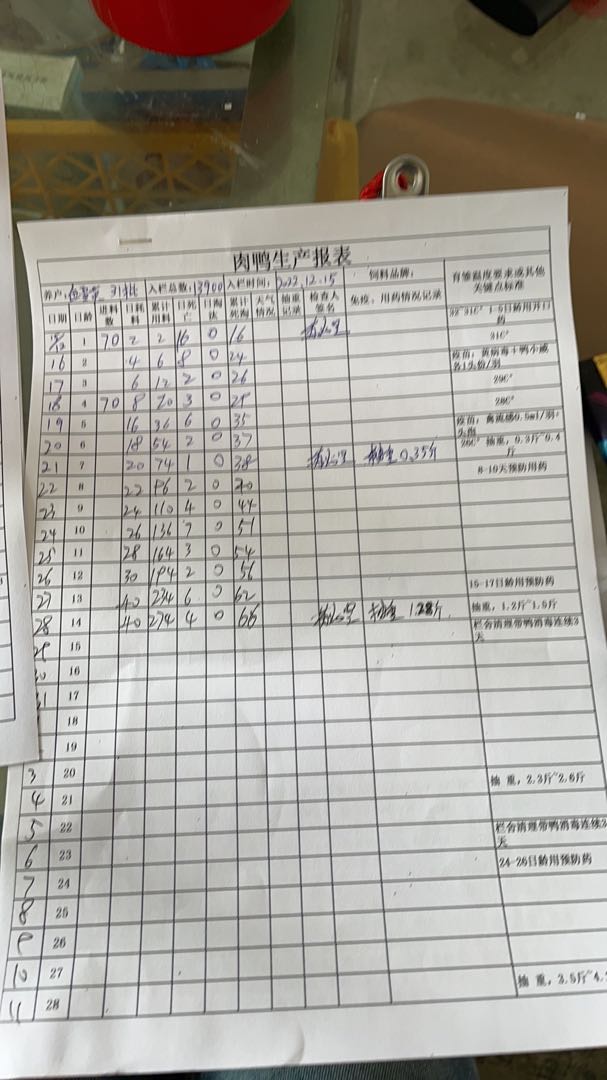 肉鸭生产报表
养户： 入栏总数：13900 入栏时间：2022.12.15 饲料品牌： 育雏温度要求或其他关键点标准
日期 日龄 进料数 日耗料 累计用料 日死亡 日淘汰 累计死淘 天气情况 抽重记录 检查人签名 免疫，用药情况记录
1 70 2 2 16 0 16 32~31C° 1-5日龄用开口药
16 2 4 6 8 0 24 31C°
17 3 6 12 2 0 26 疫苗：黄病毒+鸭小感各1头份/羽
18 4 70 8 20 3 0 29C°
19 5 16 36 6 0 35 28C°
20 6 18 54 2 0 37 疫苗：禽流感0.5ml/羽
21 7 20 74 1 0 38 抽重0.35斤 26C° 抽重，0.3斤~0.4斤
22 8 22 96 2 0 40 8-10天预防用药
23 9 24 110 4 0 44
24 10 26 136 7 0 51
25 11 28 164 3 0 54
26 12 30 194 2 0 56
27 13 40 234 6 0 62 15-17日龄用预防药
28 14 40 274 4 0 66 抽重 1.28斤 抽重，1.2斤~1.5斤
29 15 栏舍清理带鸭消毒连续3天
30 16
31 17
18
19
3 20
4 21 抽 重，2.3斤~2.6斤
5 22
6 23 栏舍清理带鸭消毒连续3天
7 24 24-26日龄用预防药
8 25
9 26
10 27
11 28 抽 重，3.5斤~4.